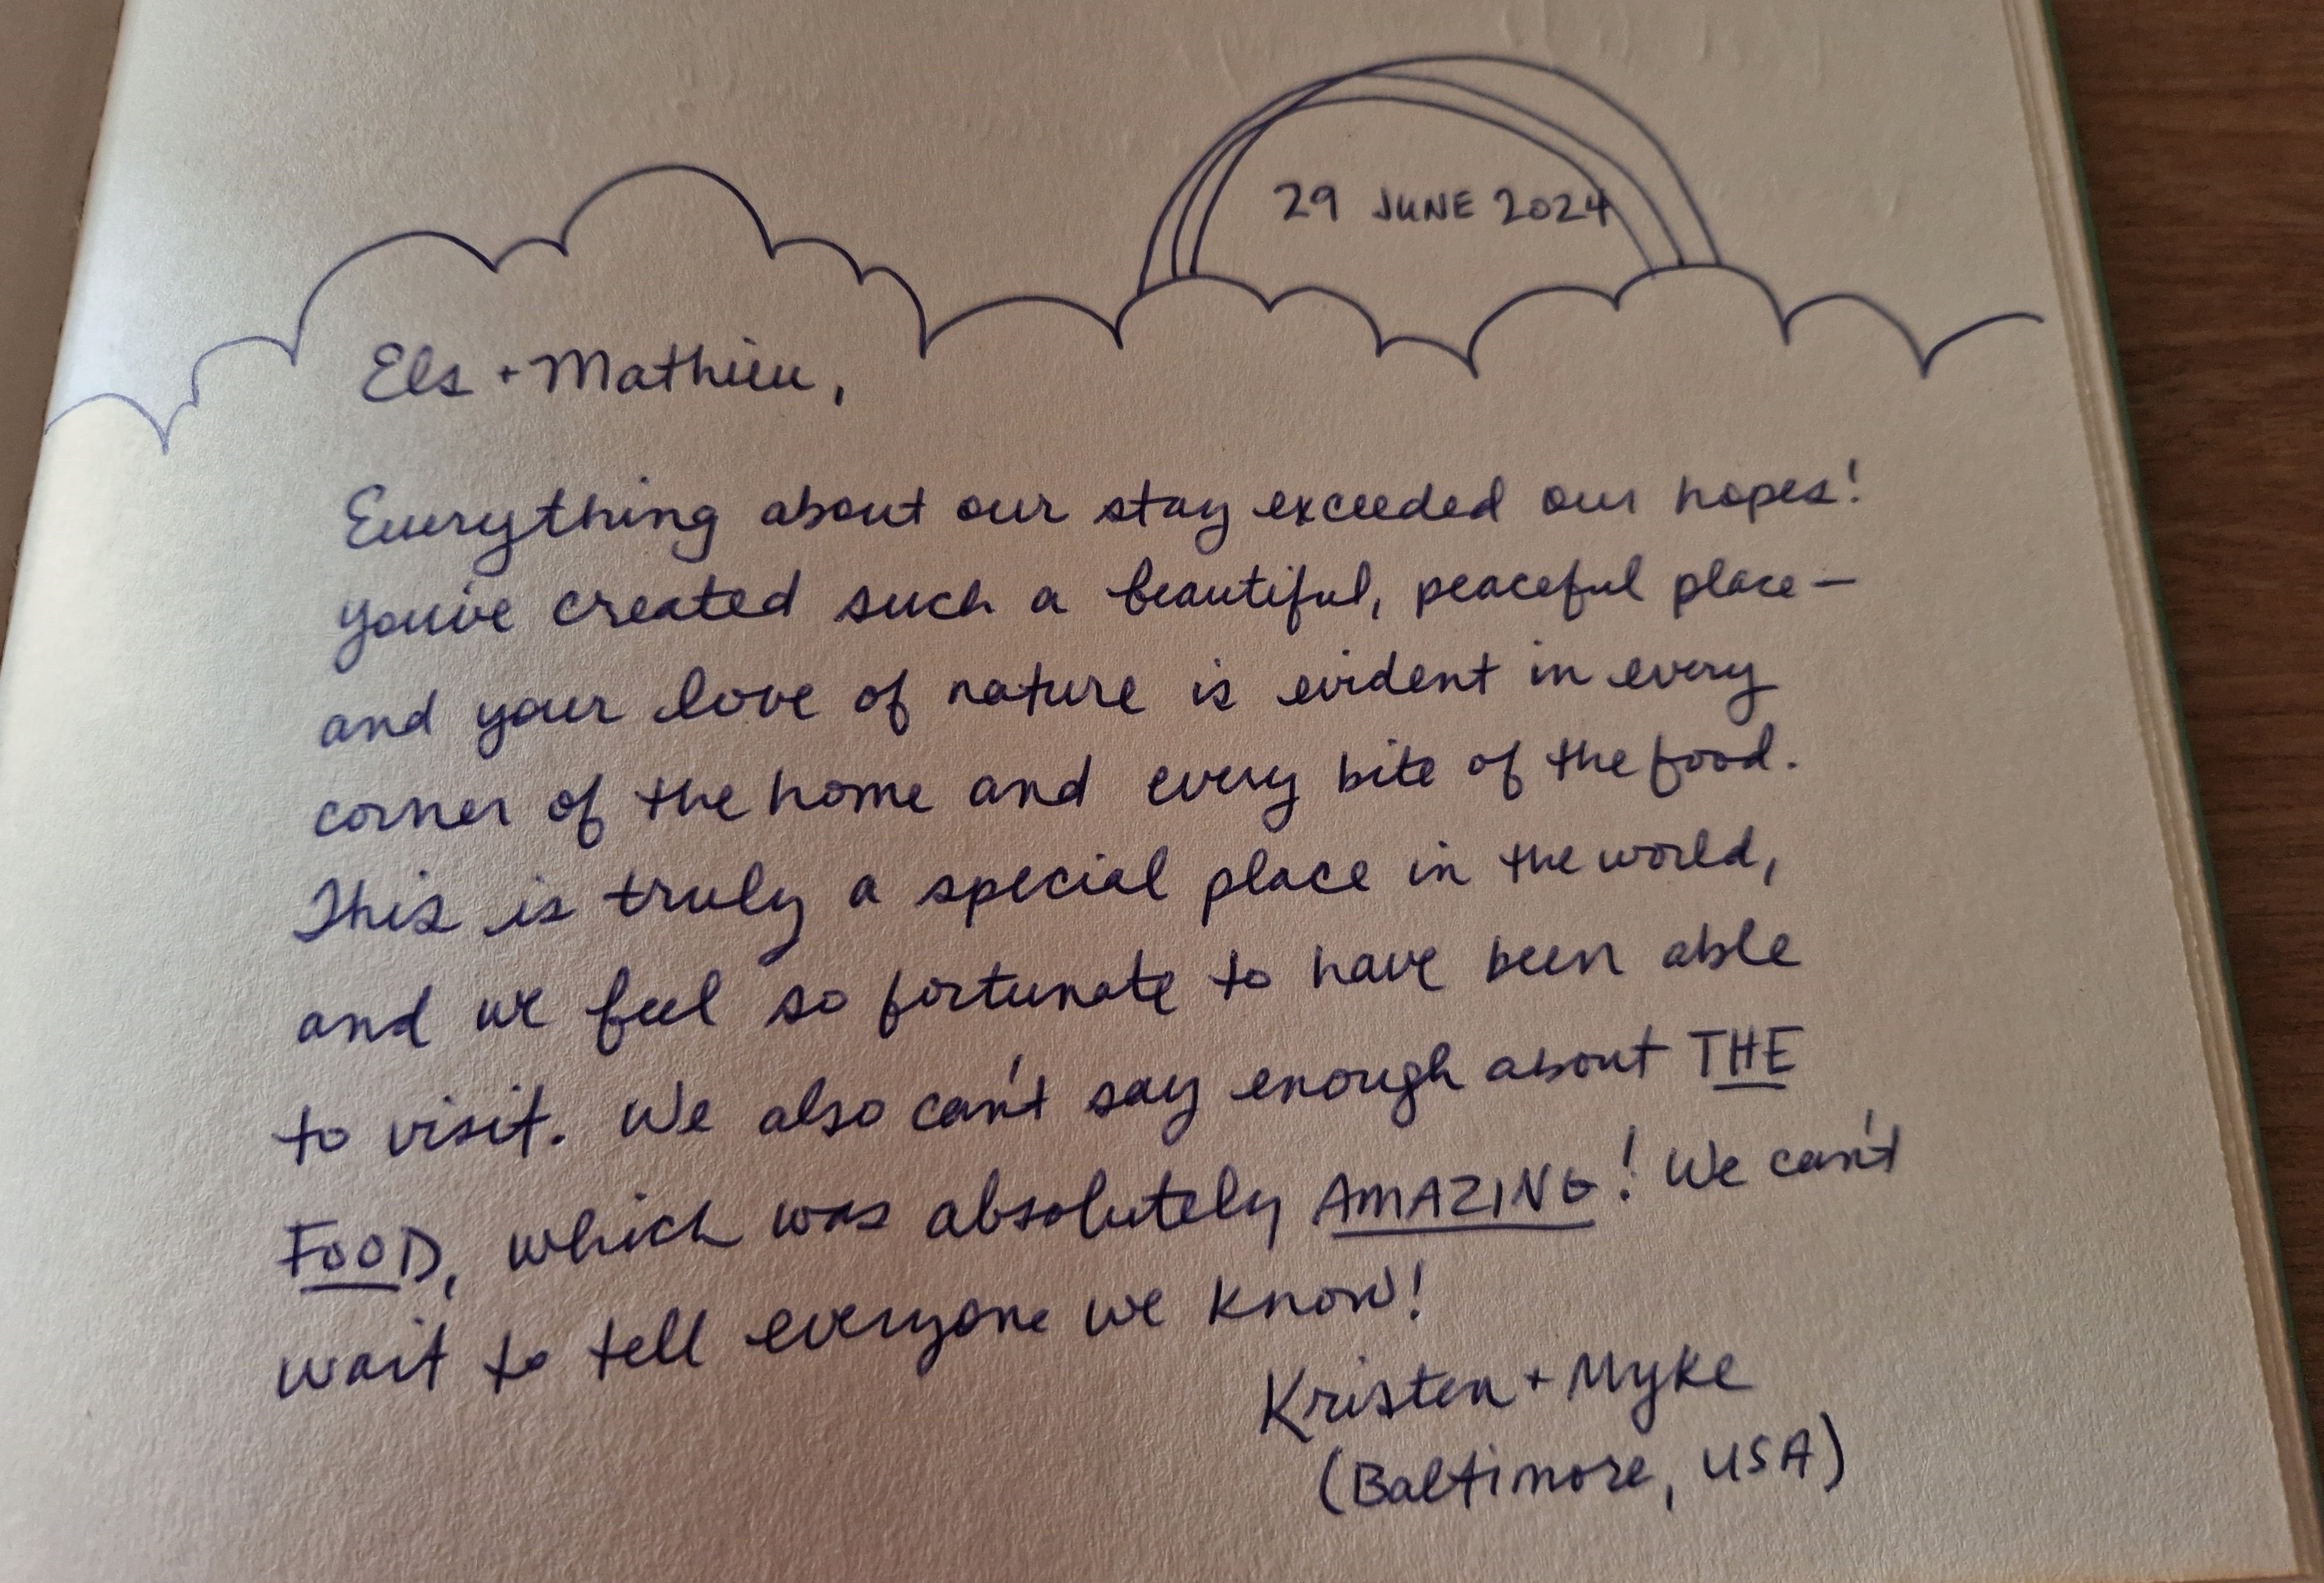 29 JUNE 2024
Els + Mathieu,
Everything about our stay exceeded our hopes!
You've created such a beautiful, peaceful place—
and your love of nature is evident in every
corner of the home and every bite of the food.
This is truly a special place in the world,
and we feel so fortunate to have been able
to visit. We also can't say enough about THE
FOOD, which was absolutely AMAZING! We can't
wait to tell everyone we know!
Kristen + Myke
(Baltimore, USA)